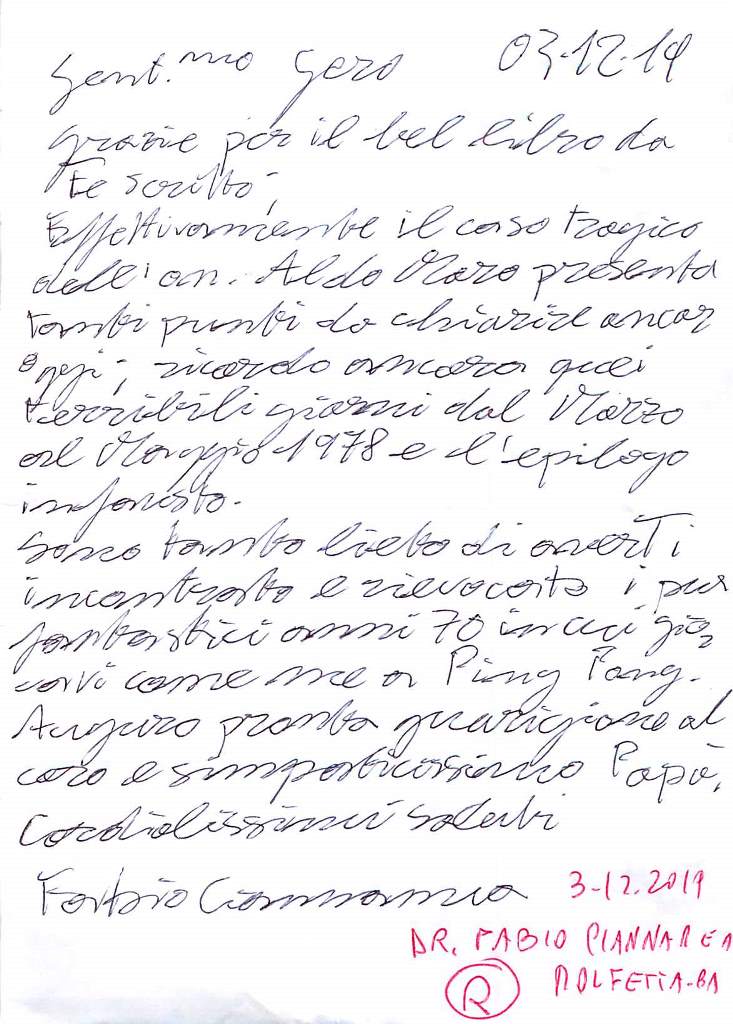 Gent.mo Gero 03-12-19
grazie per il bel libro da
Te scritto;
Effettivamente il caso tragico
dell'on. Aldo Moro presenta
tanti punti da chiarire ancor
oggi; ricordo ancora quei
terribili giorni dal Marzo
al Maggio 1978 e l'epilogo
infausto.
Sono tanto lieto di averTi
incontrato e rievocato i pur
fantastici anni 70 in cui gio,
cavi come me a Ping Pong.
Auguro pronta guarigione al
caro e simpaticissimo Papà,
Cordialissimi saluti
Fabio
3-12.2019
DR. FABIO
R MOLFETTA-BA